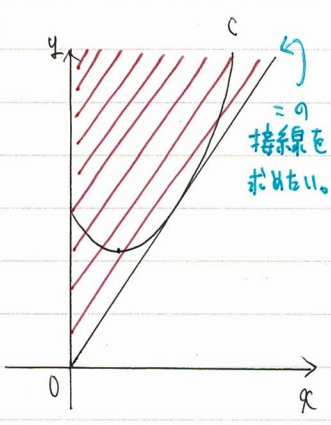 C
y
この
接線を
求めたい。
O
x